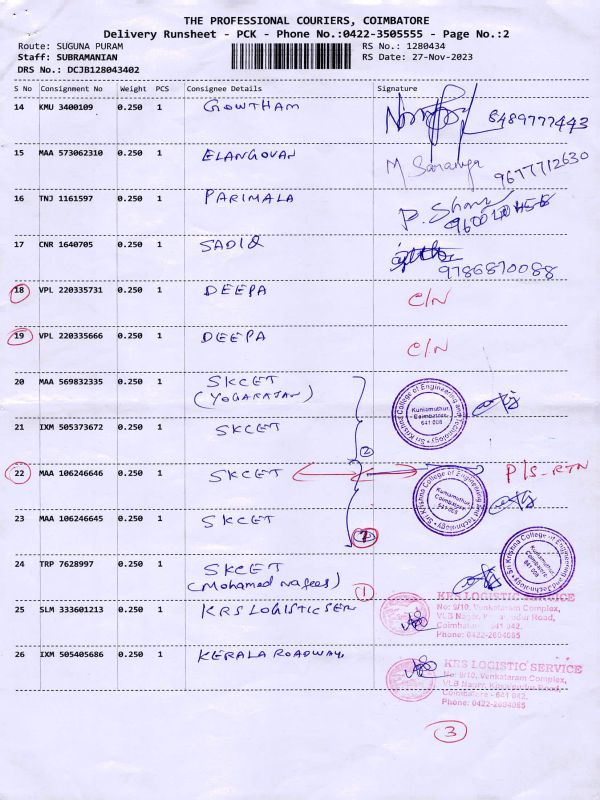 THE PROFESSIONAL COURIERS, COIMBATORE
Delivery Runsheet - PCK - Phone No.:0422-3505555 - Page No.:2
Route: SUGUNA PURAM RS No.: 1280434
Staff: SUBRAMANIAN RS Date: 27-Nov-2023
DRS No.: DCJB128043402
S No Consignment No Weight PCS Consignee Details Signature
14 KMU 3400109 0.250 1 GOWTHAM 8489777443
15 MAA 573062310 0.250 1 ELANGOVAN M Saranya 9677712630
16 TNJ 1161597 0.250 1 PARIMALA P.
17 CNR 1640705 0.250 1 SADIQ 9786870088
18 VPL 220335731 0.250 1 DEEPA C/N
19 VPL 220335666 0.250 1 DEEPA C/N
20 MAA 569832335 0.250 1 SKCET
(YOGARAJAN)
Sri Krishna College of Engineering and Technology
Kuniamuthur
Coimbatore.
641 008
21 IXM 505373672 0.250 1 SKCET
2
22 MAA 106246646 0.250 1 SKCET P/S-RTN
Sri Krishna College of Engineering and Technology
Kuniamuthur
Coimbatore
641 008
23 MAA 106246645 0.250 1 SKCET
Sri Krishna College of Engineering and Technology
Kuniamuthur
Coimbatore
641 008
24 TRP 7628997 0.250 1 SKCET
(Mohamed Nafees)
1
25 SLM 333601213 0.250 1 KRS LOGISTIC SER
KRS LOGISTIC SERVICE
No: 9/10, Venkataram Complex,
VLB Nagar, Road,
Coimbatore - 641 042.
Phone: 0422-2604085
26 IXM 505405686 0.250 1 KERALA ROADWAY
KRS LOGISTIC SERVICE
No: 9/10, Venkataram Complex,
VLB Nagar, Road,
Coimbatore - 641 042.
Phone: 0422-2604085
3